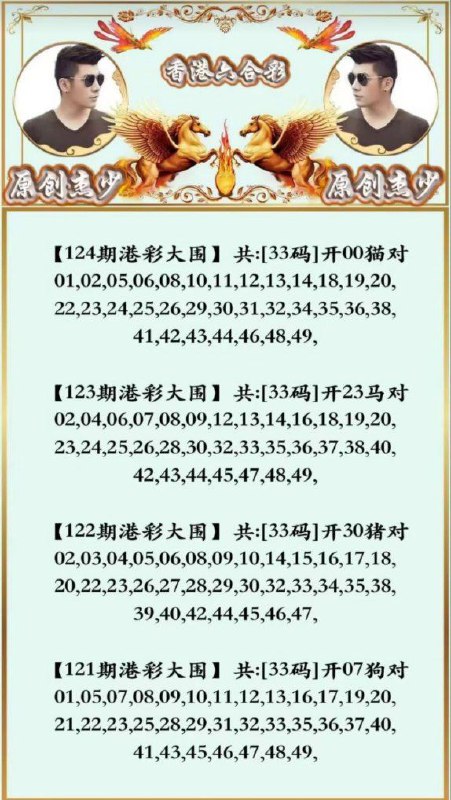 香港六合彩
原创杰少 原创杰少
【124期港彩大围】 共:[33码]开00猫对
01,02,05,06,08,10,11,12,13,14,18,19,20,
22,23,24,25,26,29,30,31,32,34,35,36,38,
41,42,43,44,46,48,49,
【123期港彩大围】 共:[33码]开23马对
02,04,06,07,08,09,12,13,14,16,18,19,20,
23,24,25,26,28,30,32,33,35,36,37,38,40,
42,43,44,45,47,48,49,
【122期港彩大围】 共:[33码]开30猪对
02,03,04,05,06,08,09,10,14,15,16,17,18,
20,22,23,26,27,28,29,30,32,33,34,35,38,
39,40,42,44,45,46,47,
【121期港彩大围】 共:[33码]开07狗对
01,05,07,08,09,10,11,12,13,16,17,19,20,
21,22,23,25,28,29,31,32,33,35,36,37,40,
41,43,45,46,47,48,49,